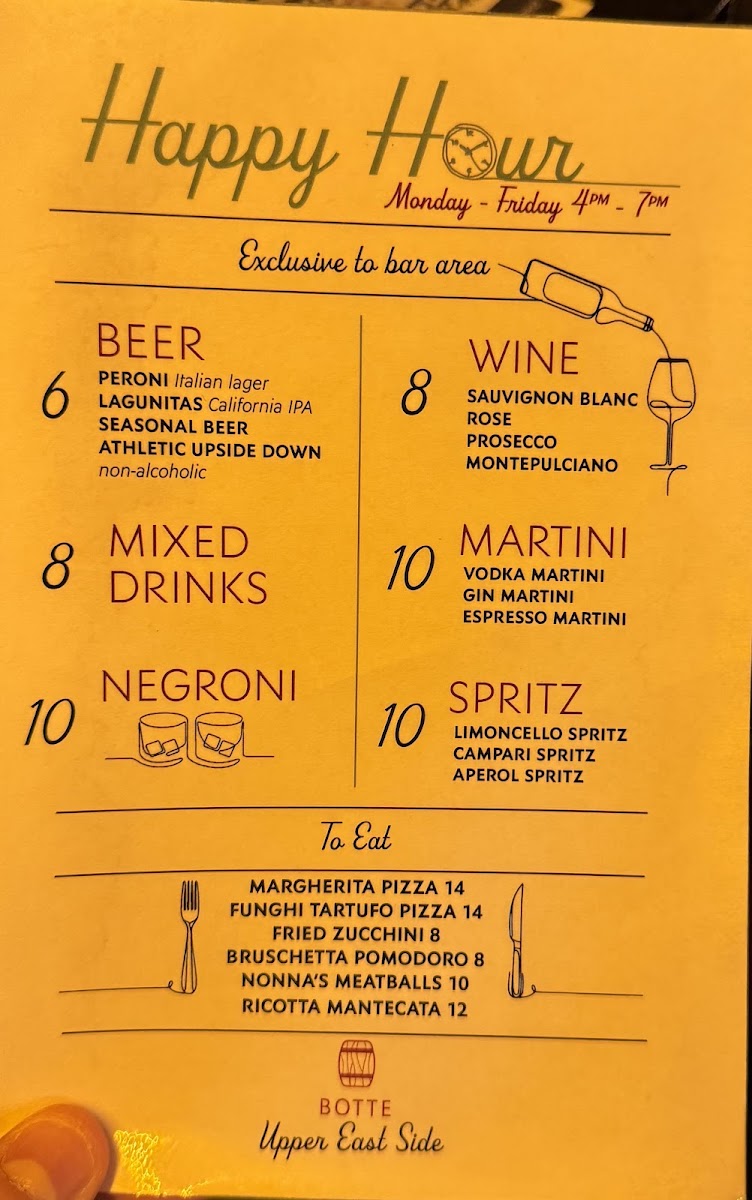 Happy Hour
Monday - Friday 4PM - 7PM
Exclusive to bar area
BEER
6
PERONI Italian lager
LAGUNITAS California IPA
SEASONAL BEER
ATHLETIC UPSIDE DOWN
non-alcoholic
8
MIXED
DRINKS
10
NEGRONI
WINE
8
SAUVIGNON BLANC
ROSE
PROSECCO
MONTEPULCIANO
10
MARTINI
VODKA MARTINI
GIN MARTINI
ESPRESSO MARTINI
10
SPRITZ
LIMONCELLO SPRITZ
CAMPARI SPRITZ
APEROL SPRITZ
To Eat
MARGHERITA PIZZA 14
FUNGHI TARTUFO PIZZA 14
FRIED ZUCCHINI 8
BRUSCHETTA POMODORO 8
NONNA'S MEATBALLS 10
RICOTTA MANTECATA 12
BOTTE
Upper East Side